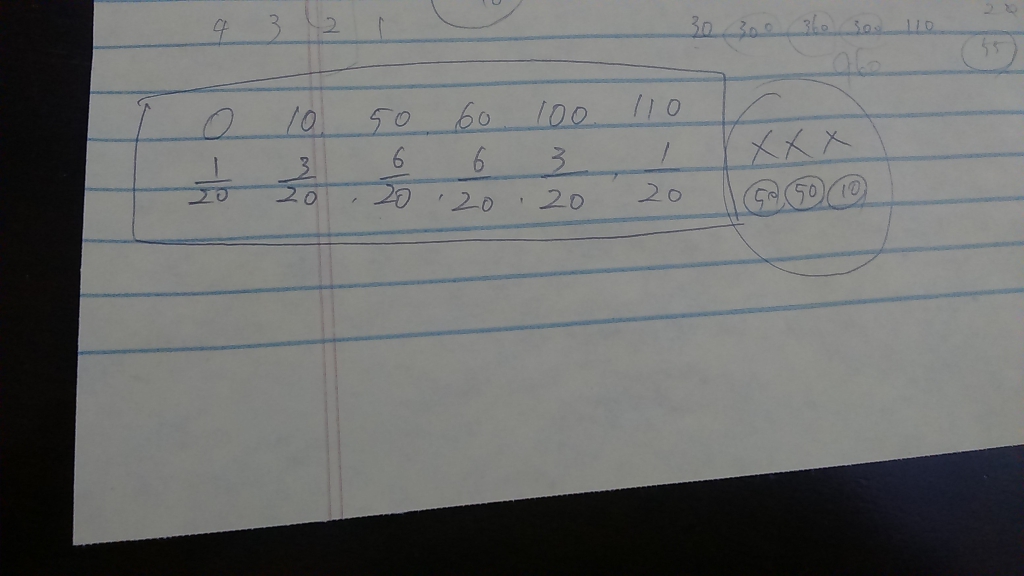 4 3 2 1 30 300 360 300 110
960 35
0 10 50 60 100 110
1/20 3/20 . 6/20 . 6/20 . 3/20 . 1/20 X X X
50 50 10